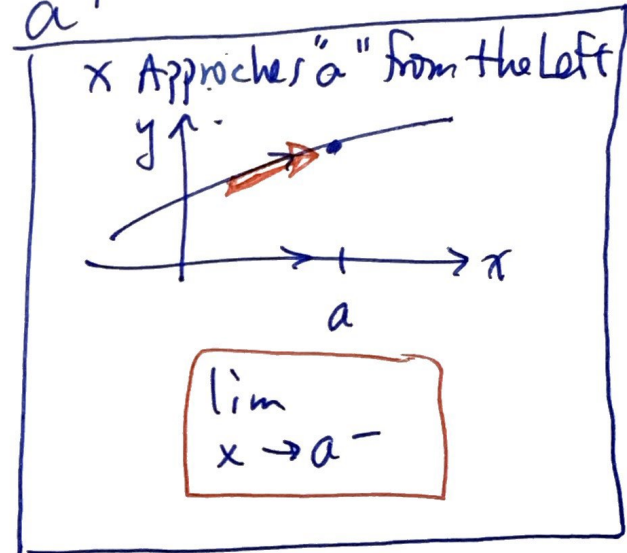 a
x Approches "a" from the Left
y
x
a
lim
x → a⁻